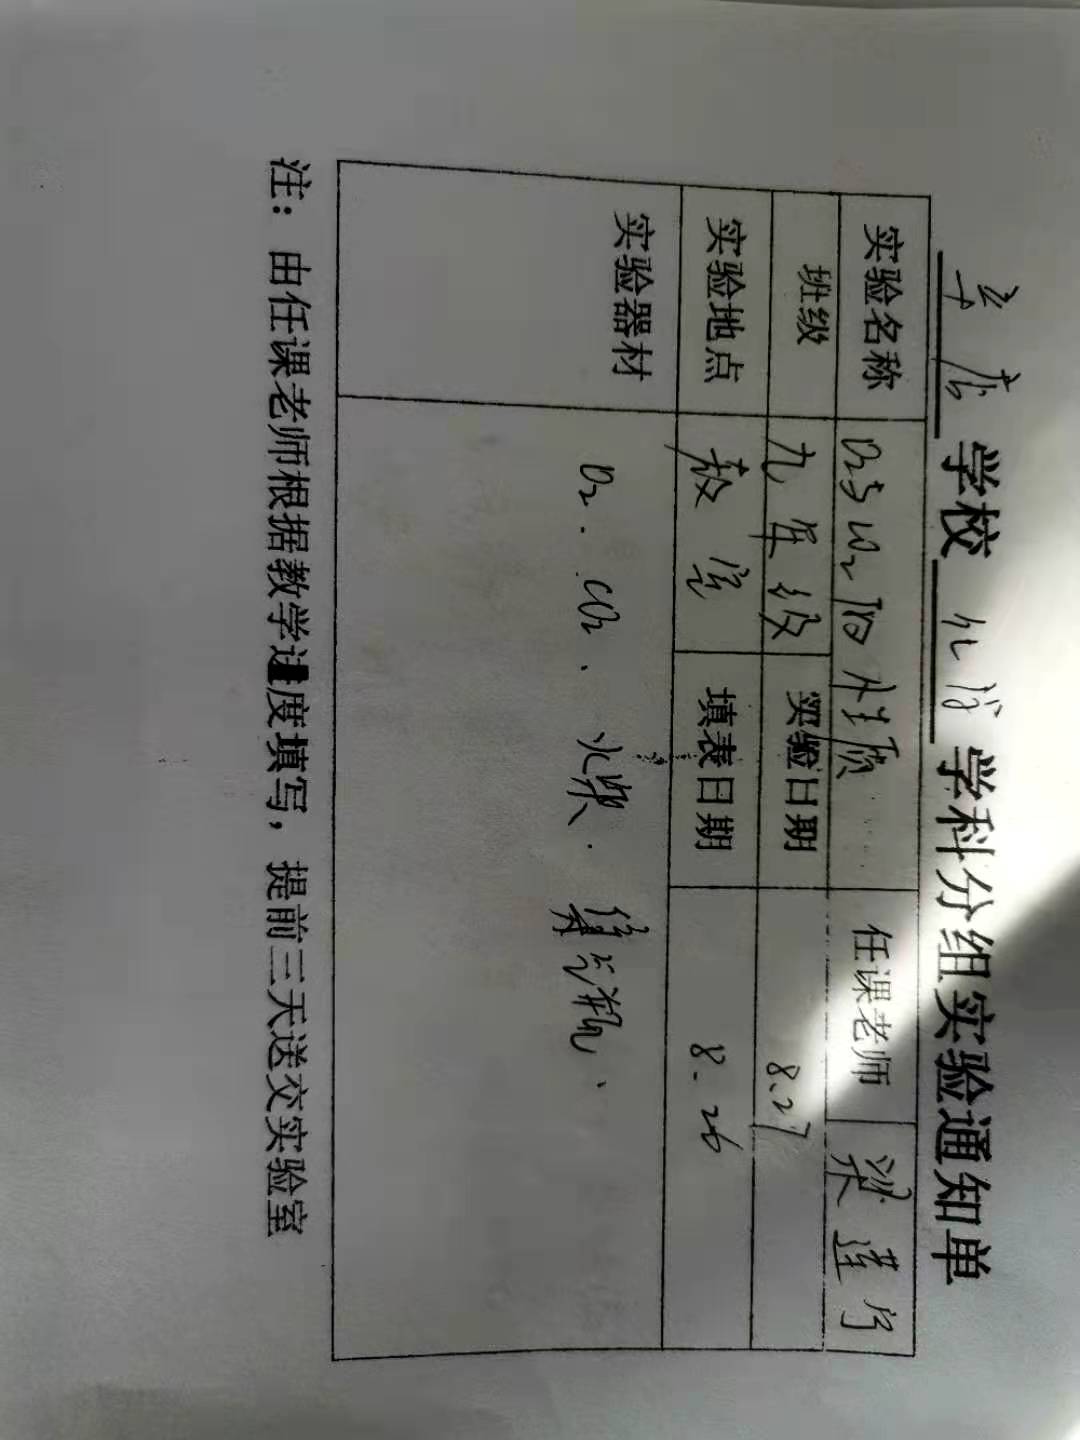 学校 化学 学科分组实验通知单
实验名称 O₂与CO₂的性质 任课老师 梁莲
班级 九年级 实验日期 8.27
实验地点 教室 填表日期 8.26
实验器材 O₂. CO₂. 火柴. 集气瓶、
注：由任课老师根据教学进度填写，提前三天送交实验室